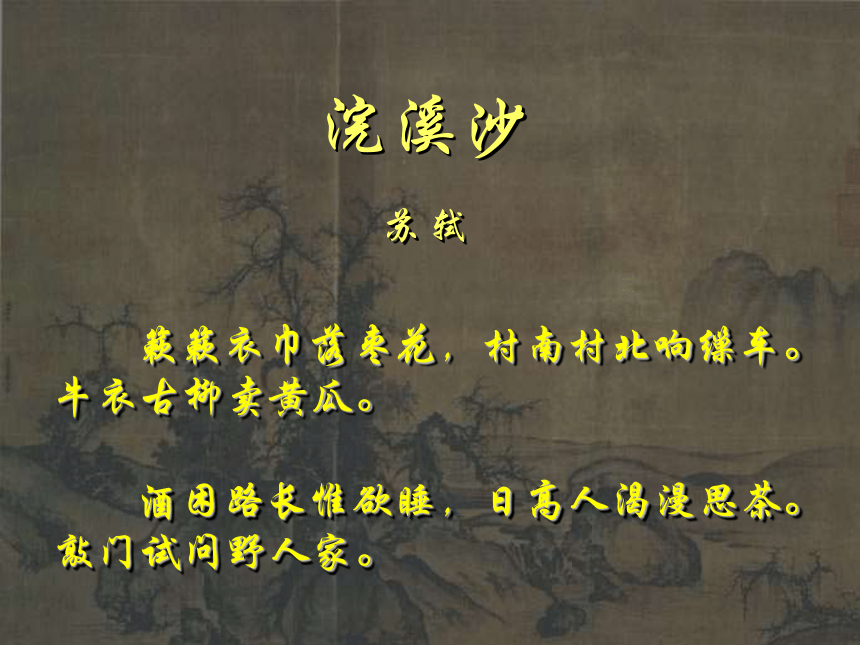 浣溪沙
苏轼
簌簌衣巾落枣花，村南村北响缲车。
牛衣古柳卖黄瓜。
酒困路长惟欲睡，日高人渴漫思茶。
敲门试问野人家。